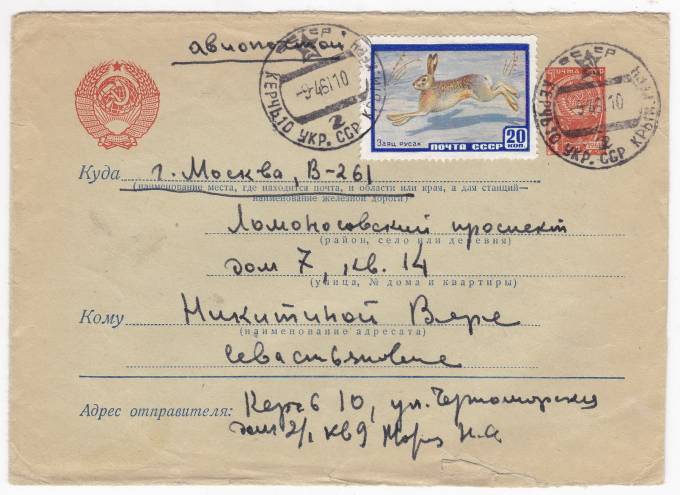 авиопочтой
СССР
КЕРЧЬ.10 УКР. ССР КРЫМ
-9461 10
2
Заяц русак ПОЧТА СССР 20 КОП
ПОЧТА СССР
КЕРЧЬ.10 УКР. ССР КРЫМ
2
Куда г. Москва, В-261
(наименование места, где находится почта, и области или края, а для станций—
наименование железной дороги)
Ломоносовский проспект
(район, село или деревня)
дом 7, кв. 14
(улица, № дома и квартиры)
Кому Никитиной Вере
(наименование адресата)
Севастьяновне
Адрес отправителя: Керчь 10, ул. Черноморская
дом 2/1 кв 9 Мороз Н.А